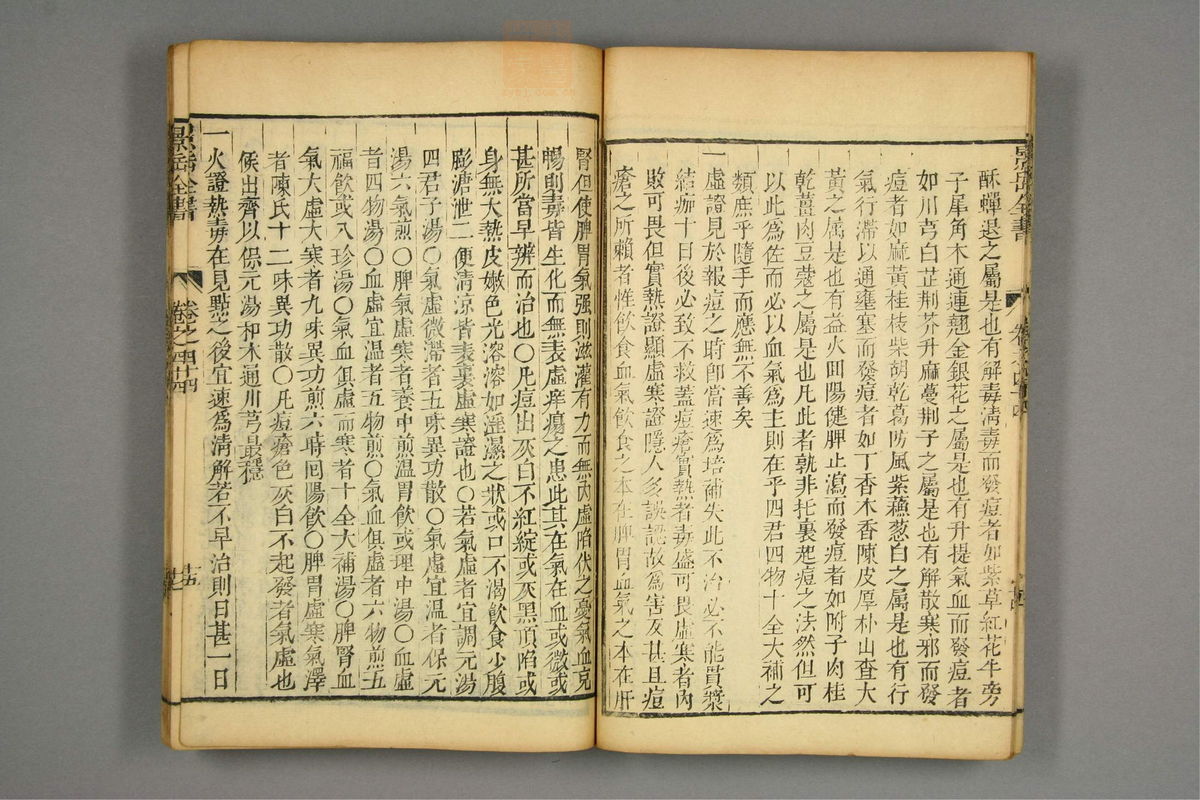 景岳全書
卷之四十四
酥蟬退之屬是也有解毒清毒而發痘者如紫草紅花牛旁
子犀角木通連翹金銀花之屬是也有升提氣血而發痘者
如川芎白芷荆芥升麻蔓荆子之屬是也有解散寒邪而發
痘者如麻黃桂枝柴胡乾葛防風紫蘓葱白之屬是也有行
氣行滯以通壅塞而發痘者如丁香木香陳皮厚朴山查大
黃之属是也有益火囬陽健脾止瀉而發痘者如附子肉桂
乾薑肉豆蔻之屬是也凡此者孰非托裏起痘之法然但可
以此爲佐而必以血氣爲主則在乎四君四物十全大補之
類庶乎隨手而應無不善矣
一虛證見於報痘之時卽當速爲培補失此不治必不能貫漿
結痂十日後必致不救蓋痘瘡實熱者毒盛可畏虛寒者内
敗可畏但實熱證顯虛寒證隱人多誤認故爲害反甚且痘
瘡之所賴者惟飲食血氣飲食之本在脾胃血氣之本在肝
腎但使脾胃氣强則滋灌有力而無内虛陷伏之憂氣血克
暢則毒皆生化而無表虛痒瘍之患此其在氣在血或微或
甚所當早辨而治也〇凡痘出灰白不紅綻或灰黑頂陷或
身無大熱皮嫩色光溶溶如淫濕之狀或口不渴飲食少腹
膨溏泄二便清涼皆表裏虛寒證也〇若氣虛者宜調元湯
四君子湯〇氣虛微滯者五味異功散〇氣虛宜温者保元
湯六氣煎〇脾氣虛寒者養中煎温胃飲或理中湯〇血虛
者四物湯〇血虛宜温者五物煎〇氣血俱虛者六物煎五
福飲或八珍湯〇氣血俱虛而寒者十全大補湯〇脾腎血
氣大虛大寒者九味異功煎六時囬陽飲〇脾胃虛寒氣澤
者陳氏十二味異功散〇凡痘瘡色灰白不起發者氣虛也
候出齊以保元湯加木通川芎最穩
一火證熱毒在見點之後宜速爲清解若不早治則日甚一日
景岳全書
卷之四十四